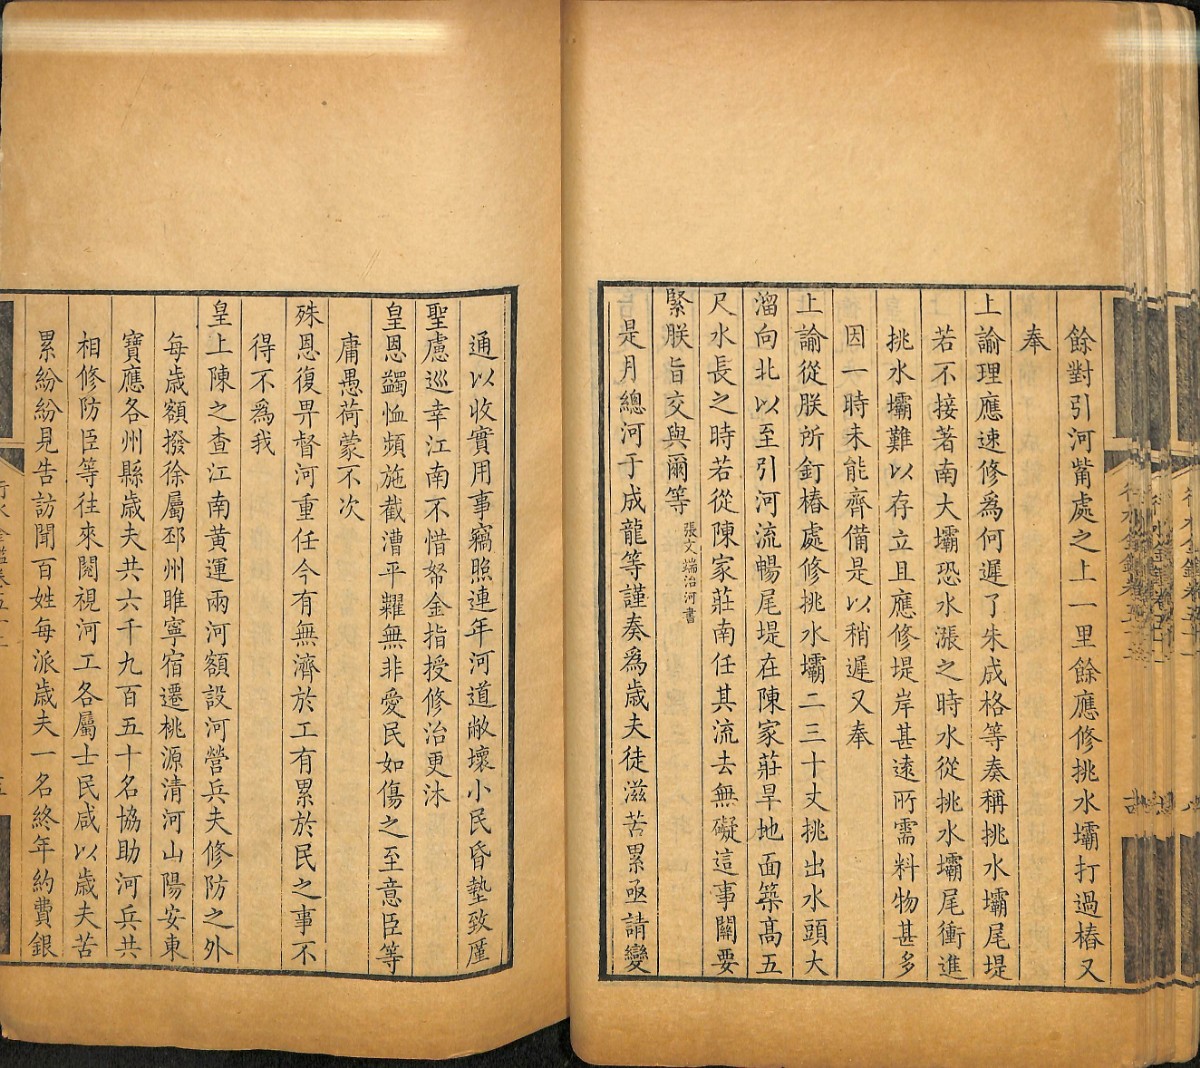 餘對引河觜處之上一里餘應修挑水壩打過樁又
奉
上諭理應速修爲何遲了朱成格等奏稱挑水壩尾堤
若不接著南大壩恐水漲之時水從挑水壩尾衝進
挑水壩難以存立且應修堤岸甚遠所需料物甚多
因一時未能齊備是以稍遲又奉
上諭從朕所釘樁處修挑水壩二三十丈挑出水頭大
溜向北以至引河流暢尾堤在陳家莊旱地面築高五
尺水長之時若從陳家莊南任其流去無礙這事關要
緊朕旨交與爾等張文端治河書
是月總河于成龍等謹奏爲歲夫徒滋苦累亟請變
通以收實用事竊照連年河道敝壞小民昏墊致廑
聖慮巡幸江南不惜帑金指授修治更沐
皇恩蠲恤頻施截漕平糶無非愛民如傷之至意臣等
庸愚荷蒙不次
殊恩復畀督河重任今有無濟於工有累於民之事不
得不爲我
皇上陳之查江南黃運兩河額設河營兵夫修防之外
每歲額撥徐屬邳州睢寧宿遷桃源清河山陽安東
寶應各州縣歲夫共六千九百五十名協助河兵共
相修防臣等往來閱視河工各屬士民咸以歲夫苦
累紛紛見告訪聞百姓每派歲夫一名終年約費銀